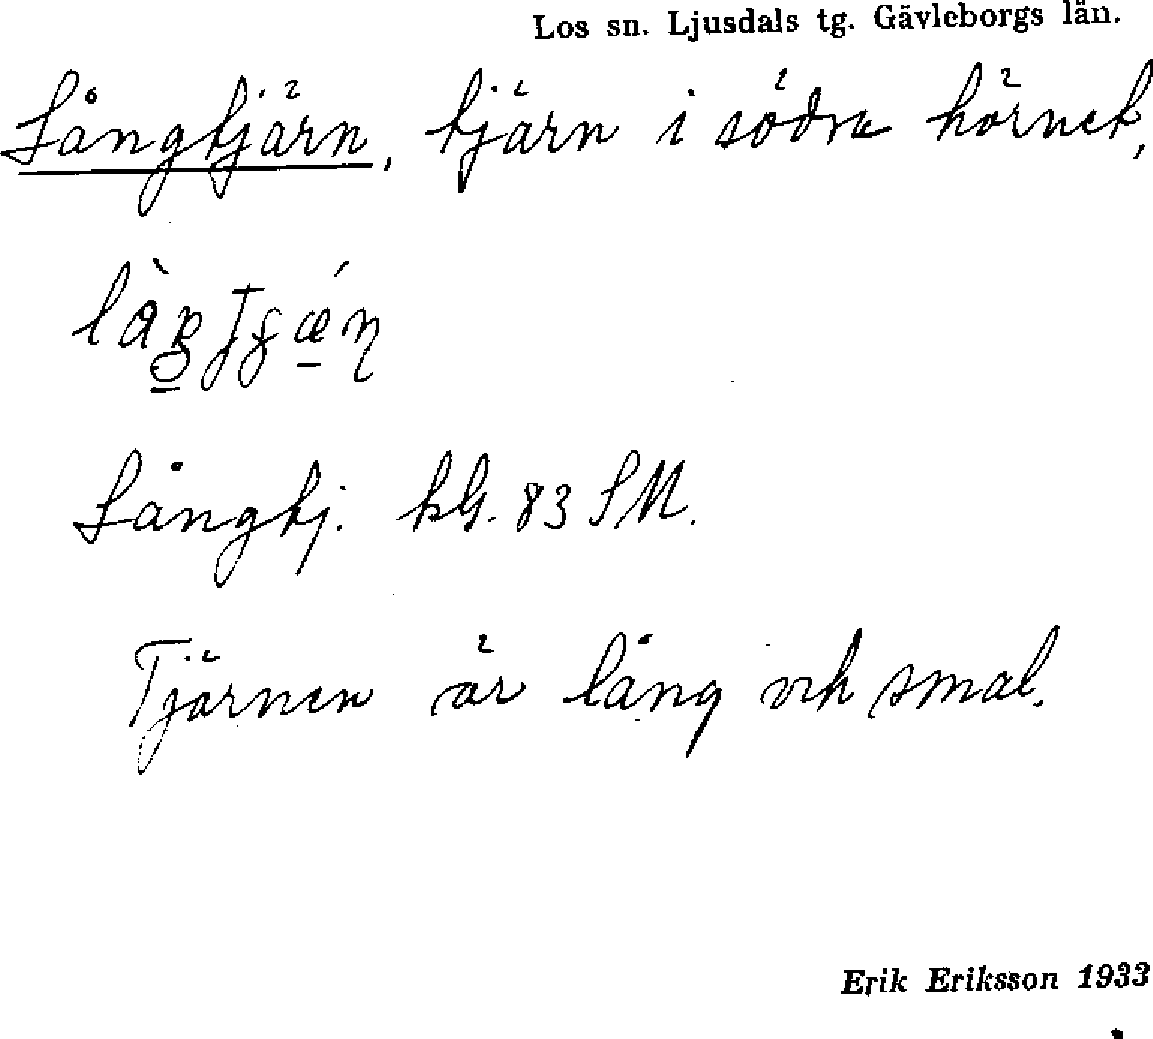 Los sn. Ljusdals tg. Gävleborgs län.
Långtjärn, tjärn i södra hörnet,
Långtj. kbl. 83 SM.
Tjärnen är lång och smal.
Erik Eriksson 1933